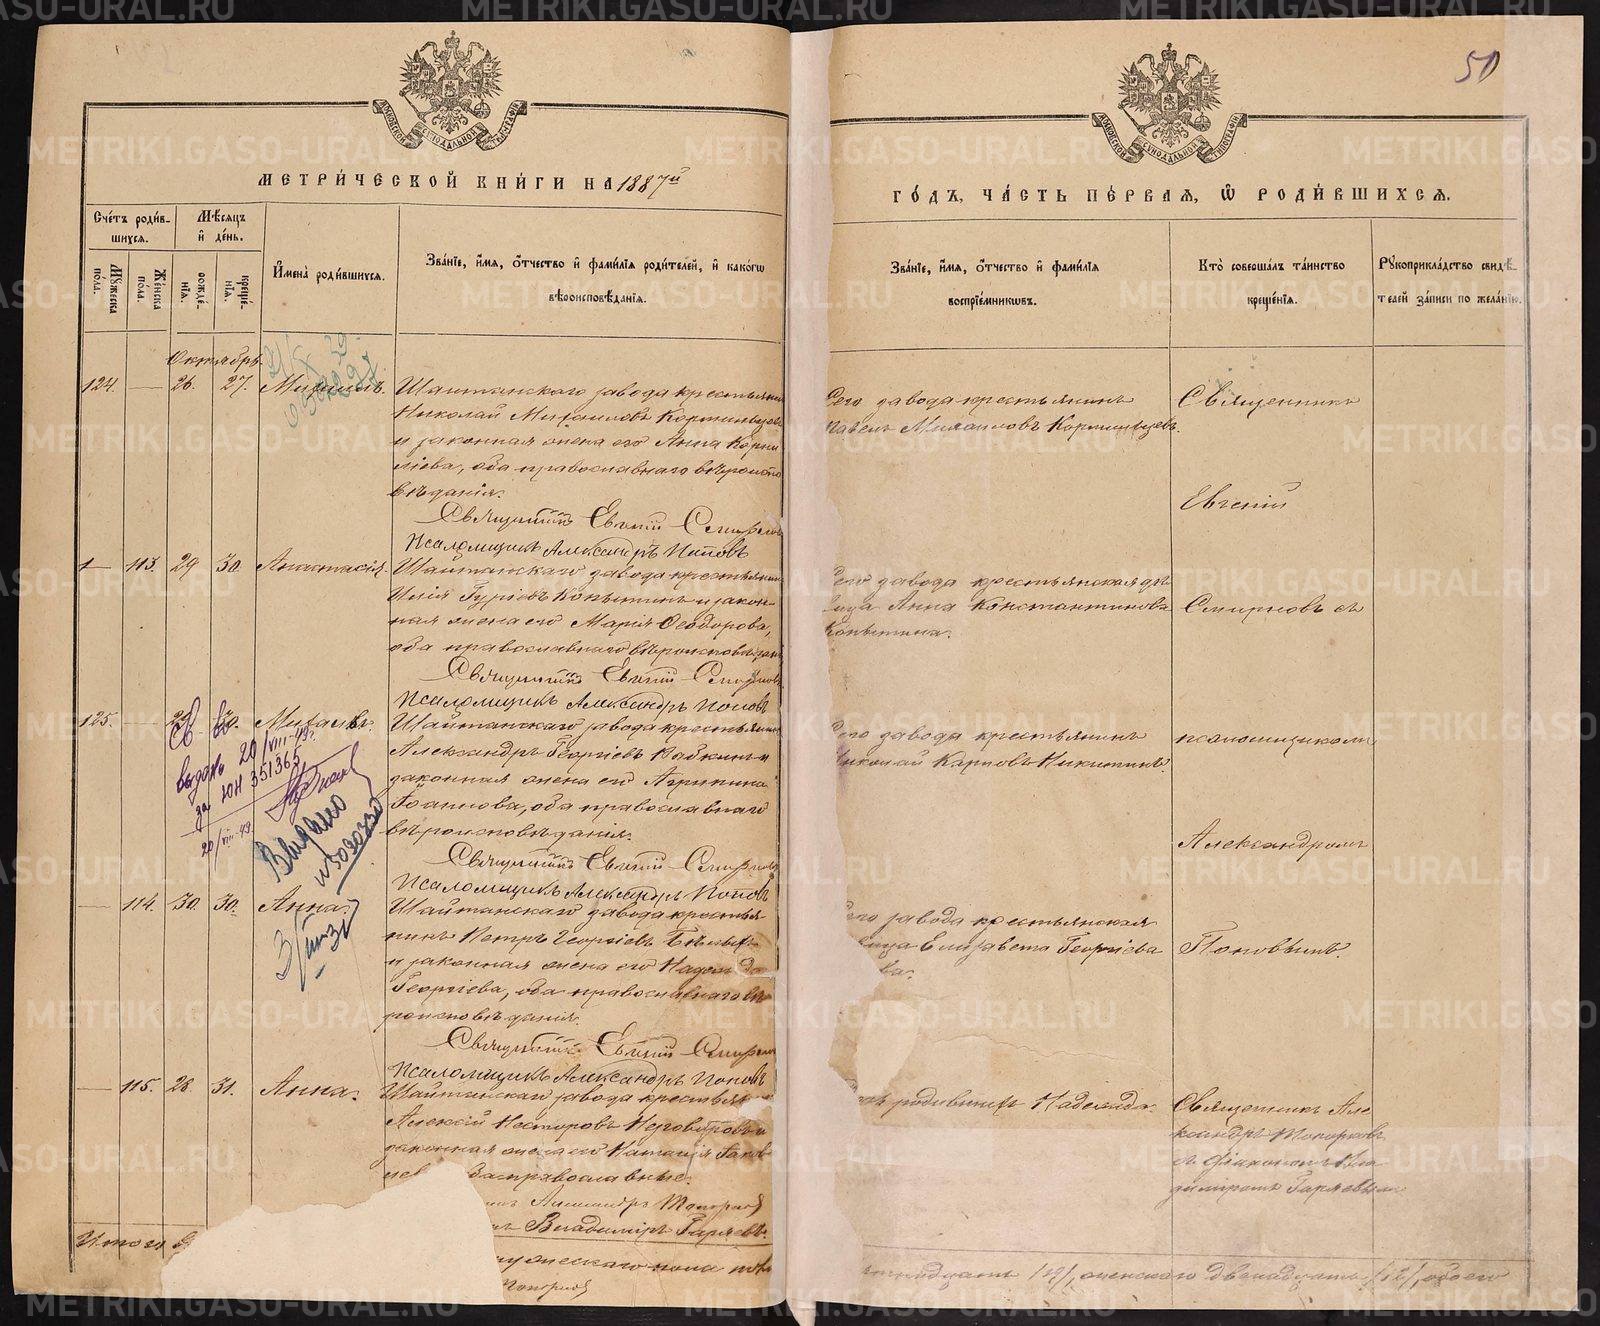 50
МОСКОВСКОЙ СѴНОДАЛЬНОЙ ТИПОГРАФІИ
МОСКОВСКОЙ СѴНОДАЛЬНОЙ ТИПОГРАФІИ
МЕТРИ́ЧЕСКОЙ КНИ́ГИ НА 1887й
ГО́ДЪ, ЧА́СТЬ ПЕ́РВАЯ, Ѡ҆ РОДИ́ВШИХСЯ.
Сче́тъ роди́в-
шихся.
Му́жеска
по́ла.
Же́нска
по́ла.
Мѣ́сяцъ
и҆ де́нь.
рожде́-
нїя.
креще́-
нїя.
И҆мена̀ роди́вшихся.
Зва́нїе, и҆́мя, ѻ҆́тчество и҆ фами́лїя роди́телей, и҆ како́гѡ
вѣроисповѣ́данїя.
Зва́нїе, и҆́мя, ѻ҆́тчество и҆ фами́лїя
воспрїе́мниковъ.
Кто̀ соверша́лъ та́инство
креще́нїя.
Рꙋкоприкла́дство свидѣ́-
телей за́писи по жела́нїю.
Октябрь.
124. — 26. 27. Михаилъ.
Шайтанскаго завода крестьянинъ
Николай Михаиловъ Кормильцевъ
и законная жена его Анна Корни
лїева, оба православнаго вѣроиспо
вѣданія.
Священникъ Евгеній Смирновъ
Псаломщикъ Александръ Поповъ
Сего завода крестьянинъ
Павелъ Михаиловъ Кормильцевъ.
Священникъ
Евгеній
113. 29 30. Анастасія.
Шайтанскаго завода крестьянинъ
Илія Гурїевъ Копытинъ и закон-
ная жена его Марія Ѳеодорова,
оба православнаго вѣроисповѣдан
Священникъ Евгеній Смирновъ
Псаломщикъ Александръ Поповъ
Сего завода крестьянская дѣ
вица Анна Константинова
Копытина.
Смирновъ съ
125. — 30. Михаилъ.
Шайтанскаго завода крестьянинъ
Александръ Георгіевъ Бабкинъ и
законная жена его Агрипина
Іоаннова, оба православнаго
вѣроисповѣданія.
Священникъ Евгеній Смирновъ
Псаломщикъ Александръ Поповъ
Сего завода крестьянинъ
Николай Карповъ Никитинъ.
псаломщикомъ
Александромъ
Св-во
выдано 20/VIII-49г.
за ЮН 351365
20/VIII-49.
Выдано
— 114. 30. 30. Анна.
Шайтанскаго завода крестья-
нинъ Петръ Георгіевъ
и законная жена его Надежда
Георгіева, оба православнаго вѣ
роисповѣданія.
Священникъ Евгеній Смирновъ
Псаломщикъ Александръ Поповъ
Сего завода крестьянская
вица Елизавета Георгіева
ва.
Поповымъ.
— 115. 28. 31. Анна.
Шайтанскаго завода крестьян
Алексій Несторовъ
законная жена его Наталія Іаков
лев православные.
Александръ Топорковъ
Владиміръ Гаряевъ.
родившихъ Надежда.
Священникъ Але
ксандръ Топорковъ
съ діакономъ Вла
диміромъ Гаряевымъ
Итого
мужескаго пола
/12/, женскаго двенадцать /12/, обоего
METRIKI.GASO-URAL.RU